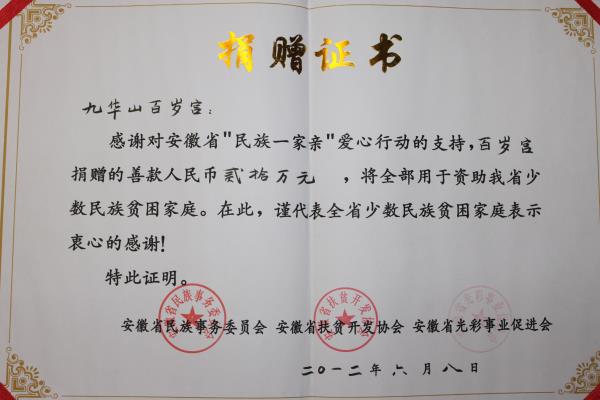 捐赠证书
九华山百岁宫:
感谢对安徽省"民族一家亲"爱心行动的支持,百岁宫
捐赠的善款人民币贰拾万元,将全部用于资助我省少
数民族贫困家庭。在此,谨代表全省少数民族贫困家庭表示
衷心的感谢!
特此证明。
安徽省民族事务委员会 安徽省扶贫开发协会 安徽省光彩事业促进会
二〇一二年六月八日